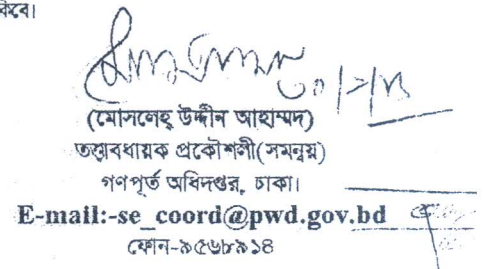 কিবে।
(মোসলেহ্ উদ্দীন আহাম্মদ)
তত্ত্বাবধায়ক প্রকৌশলী(সমন্বয়)
গণপূর্ত অধিদপ্তর, ঢাকা।
E-mail:-se_coord@pwd.gov.bd
ফোন-৯৫৬৮৯১৪